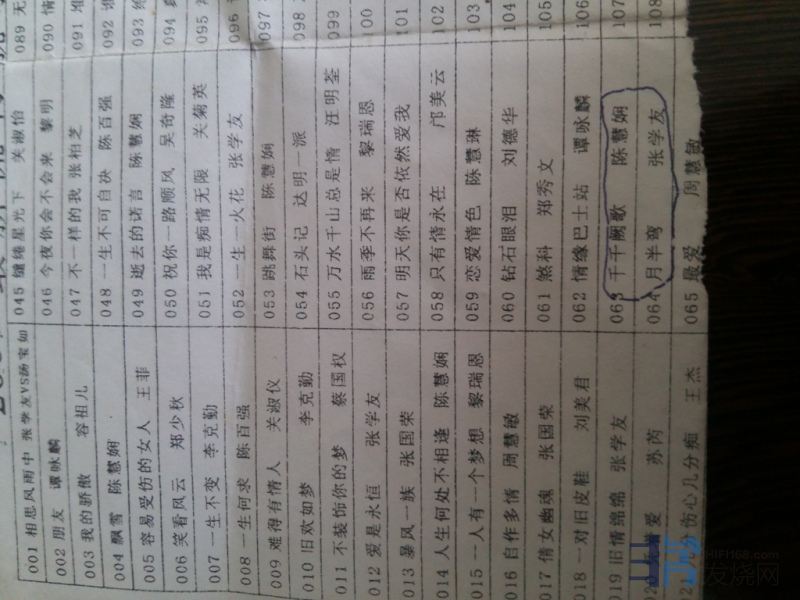 001 相思风雨中 张学友VS汤宝如
002 朋友 谭咏麟
003 我的骄傲 容祖儿
004 飘雪 陈慧娴
005 容易受伤的女人 王菲
006 笑看风云 郑少秋
007 一生不变 李克勤
008 一生何求 陈百强
009 难得有情人 关淑仪
010 旧欢如梦 李克勤
011 不装饰你的梦 蔡国权
012 爱是永恒 张学友
013 暴风一族 张国荣
014 人生何处不相逢 陈慧娴
015 一人有一个梦想 黎瑞恩
016 自作多情 周慧敏
017 倩女幽魂 张国荣
018 一对旧皮鞋 刘美君
019 旧情绵绵 张学友
020 爱 苏芮
几分伤心几分痴 王杰
045 缱绻星光下 关淑怡
046 今夜你会不会来 黎明
047 不一样的我 张柏芝
048 一生不可自决 陈百强
049 逝去的诺言 陈慧娴
050 祝你一路顺风 吴奇隆
051 我是痴情无限 关菊英
052 一生一火花 张学友
053 跳舞街 陈慧娴
054 石头记 达明一派
055 万水千山总是情 汪明荃
056 雨季不再来 黎瑞恩
057 明天你是否依然爱我
058 只有情永在 邝美云
059 恋爱情色 陈慧琳
060 钻石眼泪 刘德华
061 煞科 郑秀文
062 情缘巴士站 谭咏麟
063 千千阙歌 陈慧娴
064 月半弯 张学友
065 最爱 周慧敏
089 无
090 情
091 堆
092
093
094
095
096
097
098
099
100
101
102
103
104
105
106
107
108
HIFI168.com
发烧网